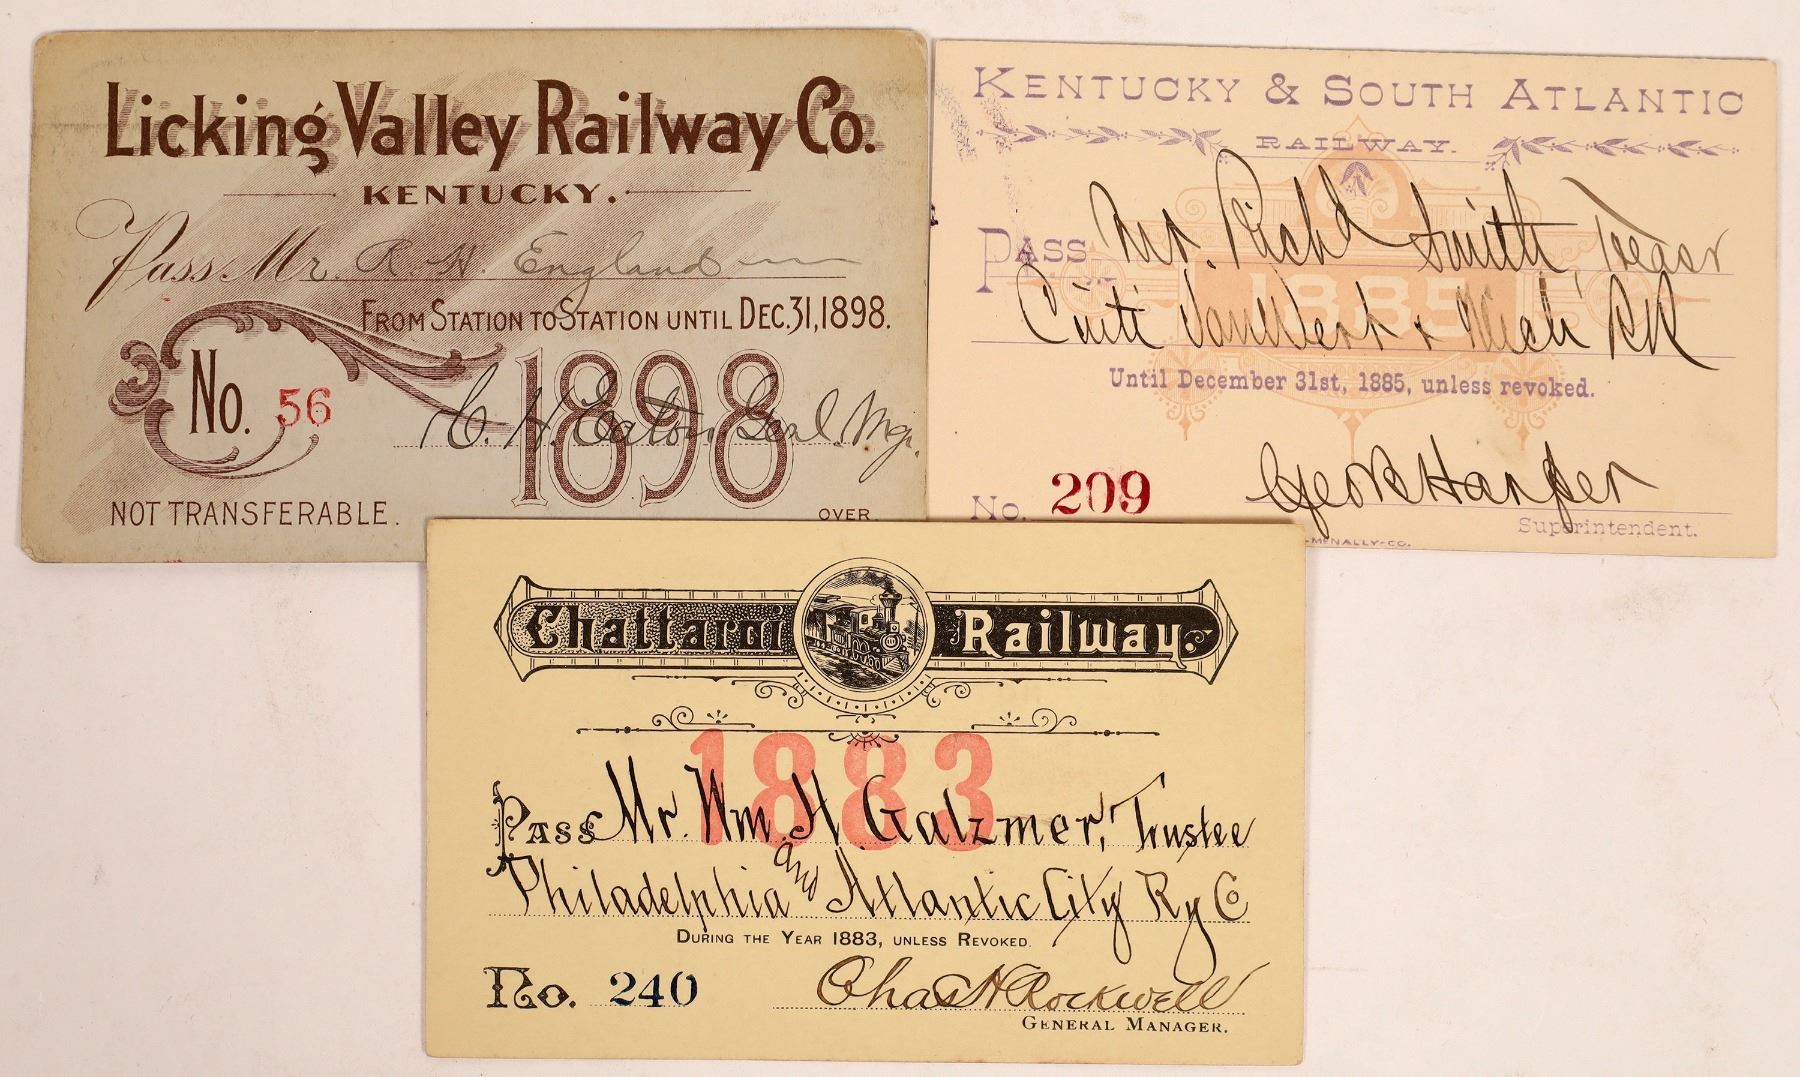 Licking Valley Railway Co.
KENTUCKY.
Pass Mr. R. H. England
FROM STATION TO STATION UNTIL DEC. 31, 1898.
No. 56
1898
C. H. Eaton, Genl. Mgr.
NOT TRANSFERABLE.
OVER.
KENTUCKY & SOUTH ATLANTIC
RAILWAY.
PASS Mr. Richd Smith, Treasr
1885
Cinti VanWert & Mich RR
Until December 31st, 1885, unless revoked.
Geo B Harper
No. 209
Superintendent.
-MCNALLY-CO.
Chattaroi Railway.
1883
PASS Mr. Wm. H. Galzmer, Trustee
Philadelphia and Atlantic City Ry Co
DURING THE YEAR 1883, UNLESS REVOKED.
No. 240
Chas H Rockwell
GENERAL MANAGER.